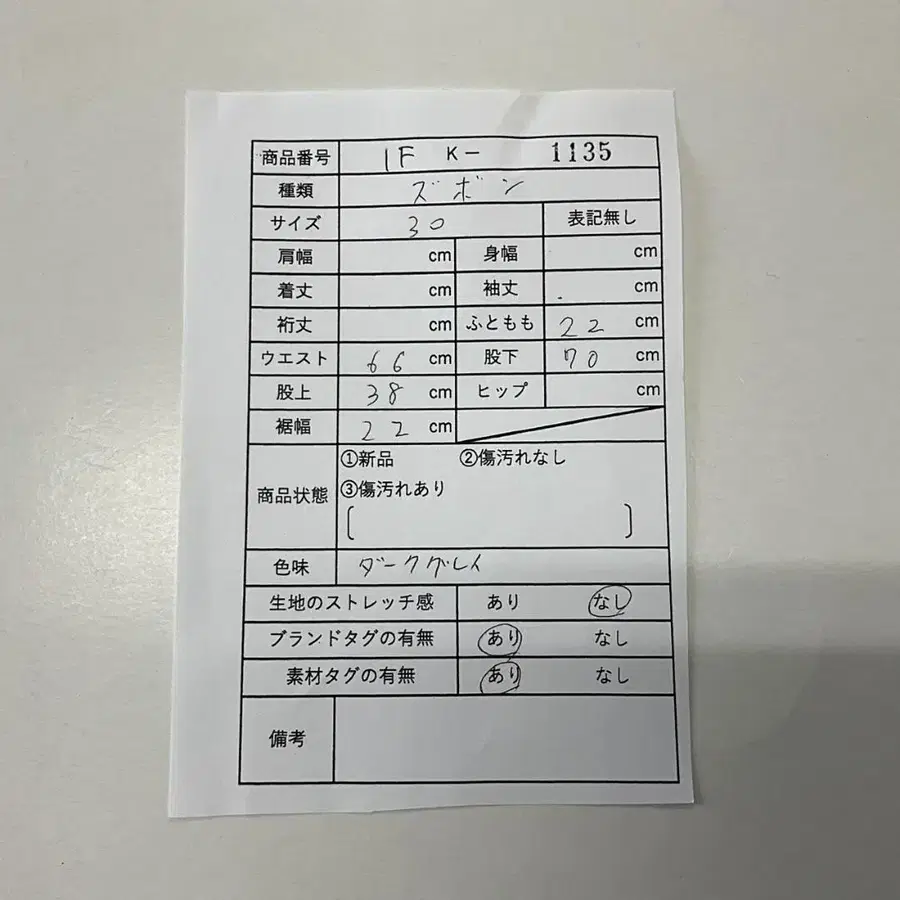 商品番号 1F K- 1135
種類 ズボン
サイズ 30 表記無し
肩幅 cm 身幅 cm
着丈 cm 袖丈 cm
裄丈 cm ふともも 22 cm
ウエスト 66 cm 股下 70 cm
股上 38 cm ヒップ cm
裾幅 22 cm
商品状態 ①新品 ②傷汚れなし
③傷汚れあり
[ ]
色味 ダークグレイ
生地のストレッチ感 あり なし
ブランドタグの有無 あり なし
素材タグの有無 あり なし
備考